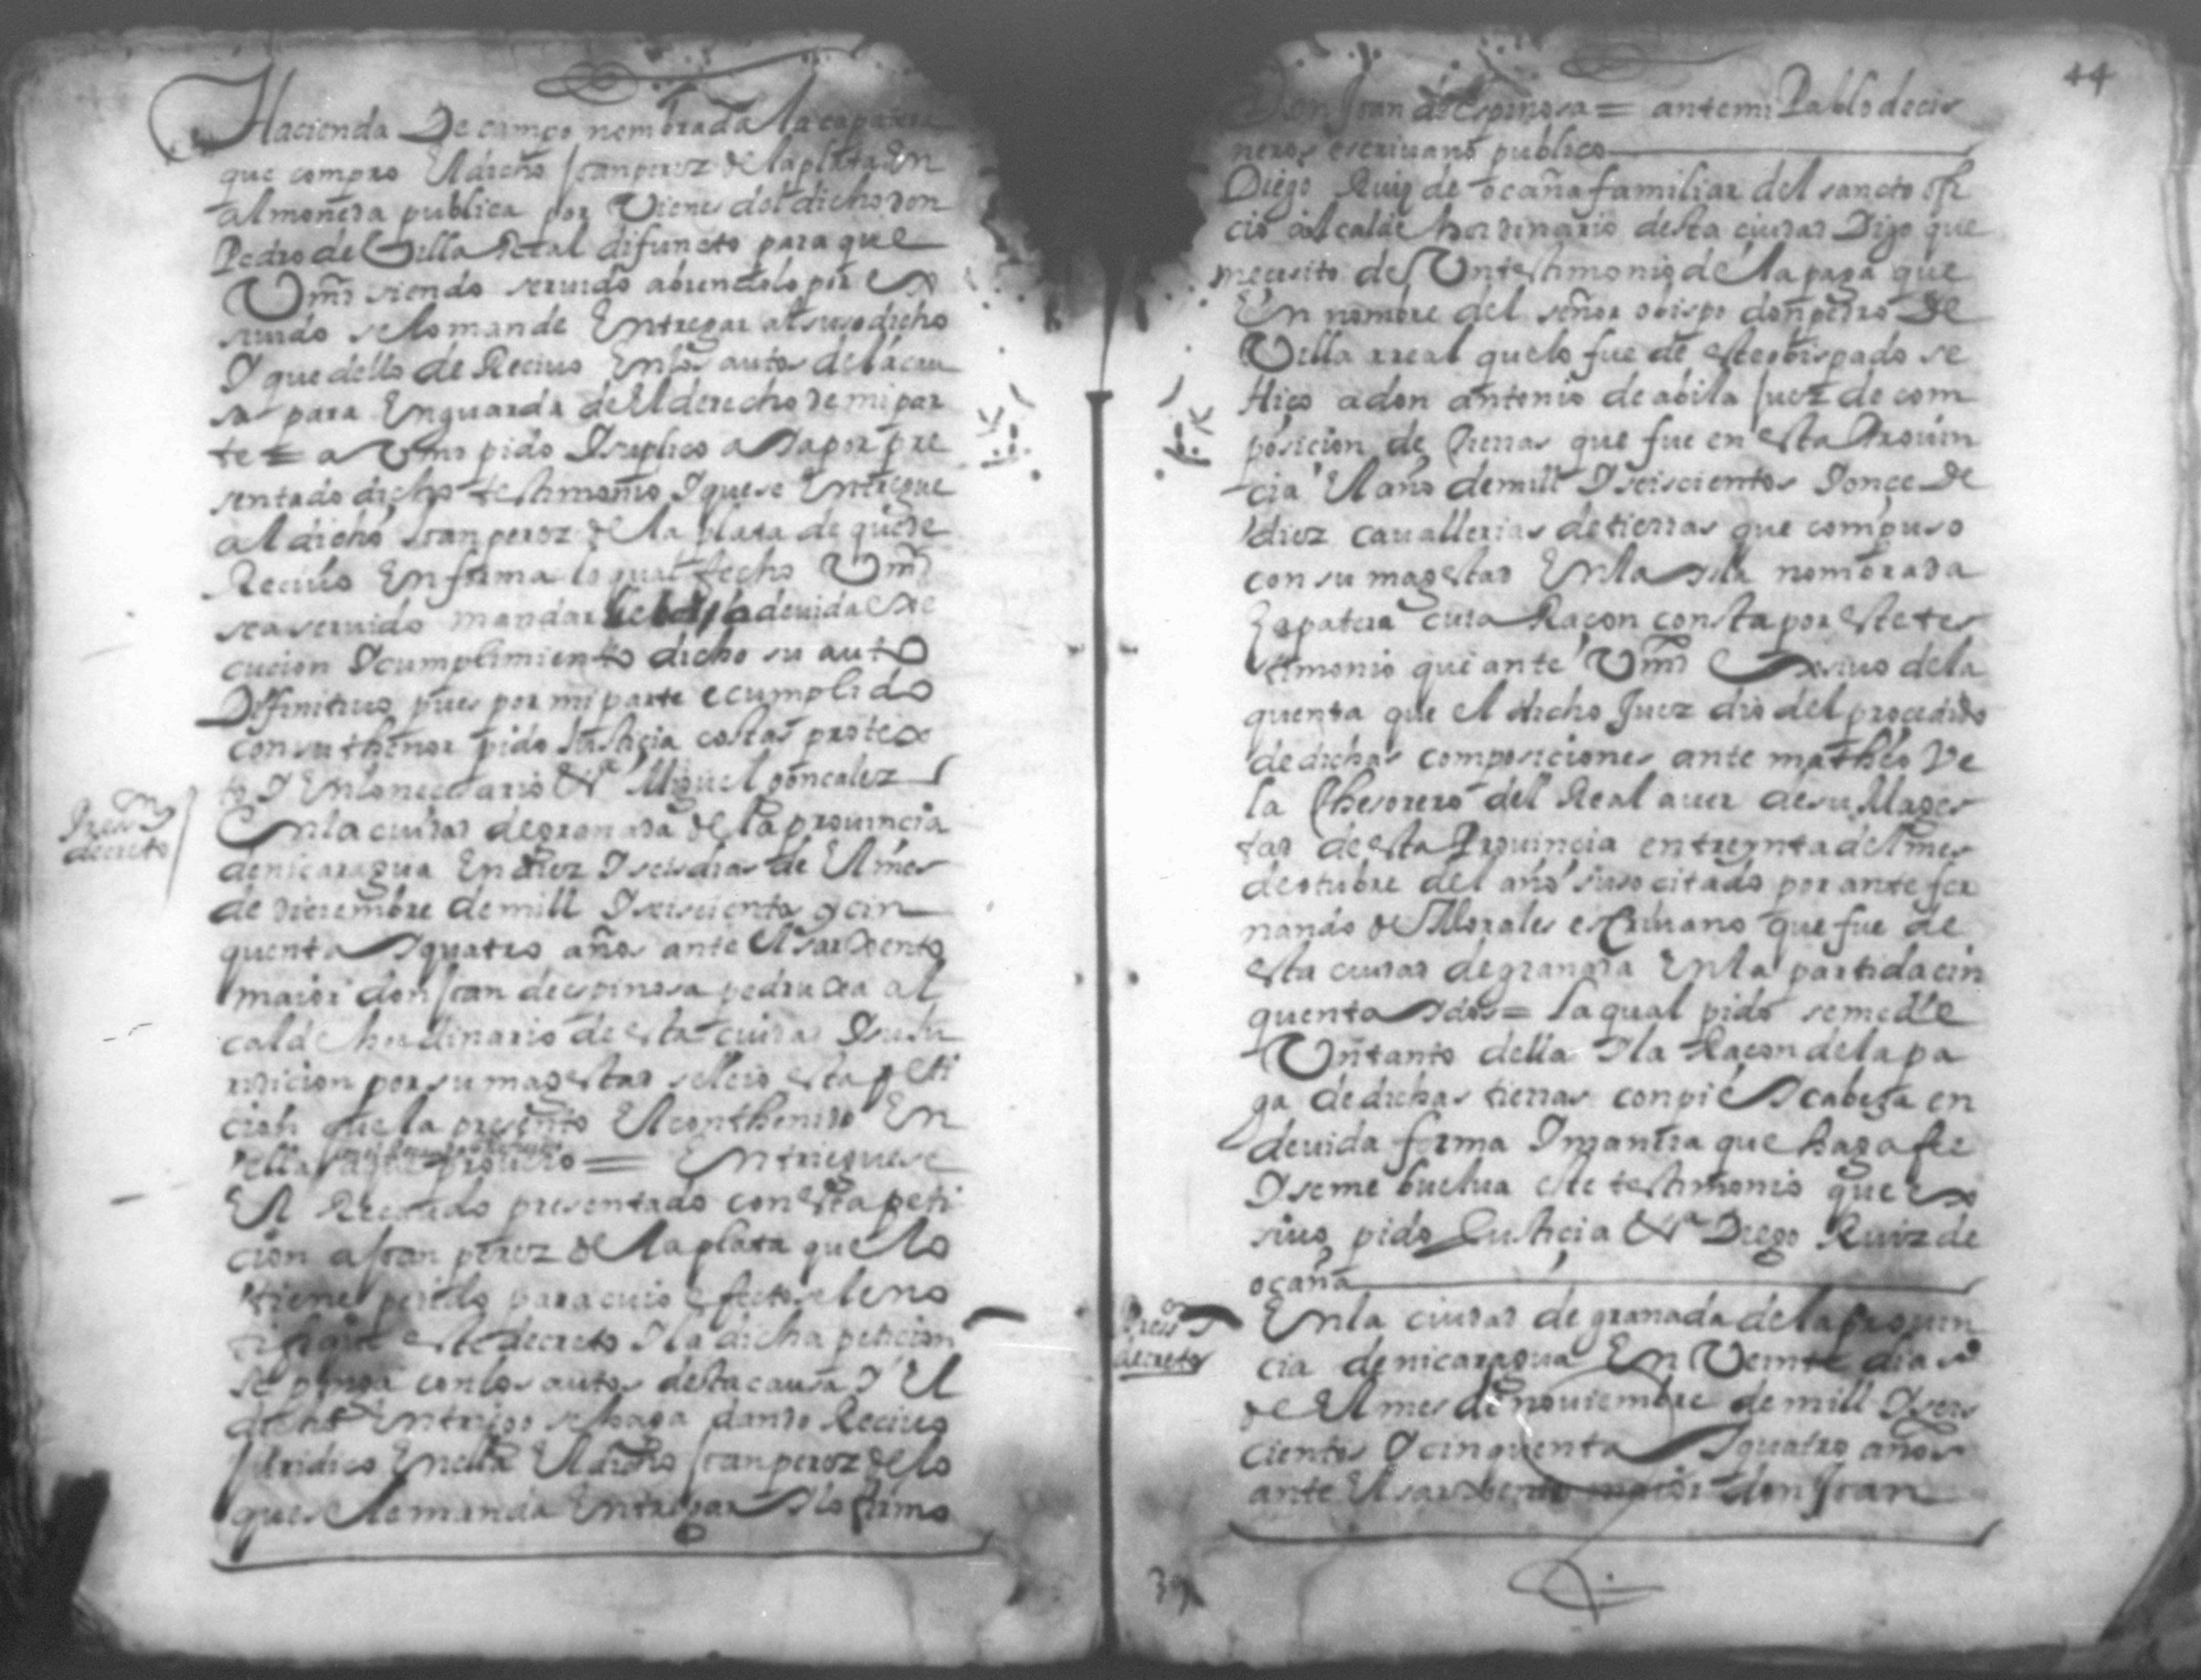 Hacienda De campo nombrada la capatera
que compro El dicho Joan perez de la plata En
almoneda publica por Vienes del dicho don
Pedro de Villa Real difuncto para que
Vmd siendo seruido abiendolo por Ex
siuido se lo mande Entregar al susodicho
I que dello de Reciuo En los autos de la cau
sa para En guarda de El derecho de mi par
te = a Vmd pido I suplico aya por pre
sentado dicho testimonio I que se Entregue
al dicho Joan perez de la plata de que de
Reciuo En forma lo qual fecho Vmd
sea seruido mandar lleba a deuida exe
cucion I cumplimiento dicho su auto
Difinitiuo pues por mi parte e cumplido
con su thenor pido Justicia costas protex
to I En lo necesario &ª Miguel gonçalez
Presson
decreto
En la ciudad de granada de la prouincia
de nicaragua En diez I seis dias de El mes
de diciembre de mill I seiscientos y cin
quenta I quatro años ante El sarxento
maior don Joan de espinosa pedraxa al
calde hordinario de esta ciudad I su ju
risdicion por su magestad se leio esta peti
cion que la presento El conthenido En
ella = Entreguese
El Recaudo presentado con esta peti
cion a Joan perez de la plata que lo
tiene pedido para cuio efecto se le no
tifique este decreto I la dicha peticion
se ponga con los autos desta causa I El
dicho Entrego se haga dando Reciuo
Juridico En ella El dicho Joan perez de lo
que se le manda Entregar I lo firmo
44
Don Joan de Espinosa = ante mi Pablo de cis
neros escriuano publico
Diego Ruiz de ocaña familiar del sancto ofi
cio alcalde hordinario desta ciudad Digo que
necesito de Un testimonio de la paga que
En nombre del señor obispo don pedro De
Villa rreal que lo fue de este obispado se
Hiço a don antonio de abila Juez de com
posicion de tierras que fue en esta Prouin
cia El año de mill I seiscientos I once De
diez cauallerias de tierras que compuso
con su magestad En la Isla nombrada
Zapatera cuia Raçon consta por este tes
timonio que ante Vmd Exsiuo de la
quenta que el dicho Juez dio del procedido
de dichas composiciones ante matheo De
la Thesorero del Real auer de su Mages
tad de esta Prouincia en treynta del mes
de otubre del año suso citado por ante fer
nando de Morales escriuano que fue de
esta ciudad de granada En la partida cin
quenta I dos = la qual pido se me de
Un tanto della I la Raçon de la pa
ga de dichas tierras con pie I cabeça en
deuida forma I manera que haga fee
I se me buelua este testimonio que ex
siuo pido Justicia &ª Diego Ruiz de
ocaña
Presson
decreto
En la ciudad de granada de la prouin
cia de nicaragua En Veinte dias
de El mes de nouiembre de mill I seis
cientos I cinquenta I quatro años
ante El sarxento maior don Joan
39